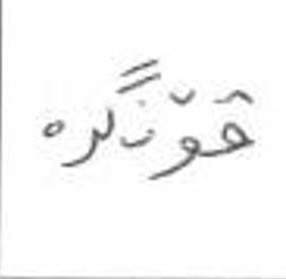 قۆنگرە